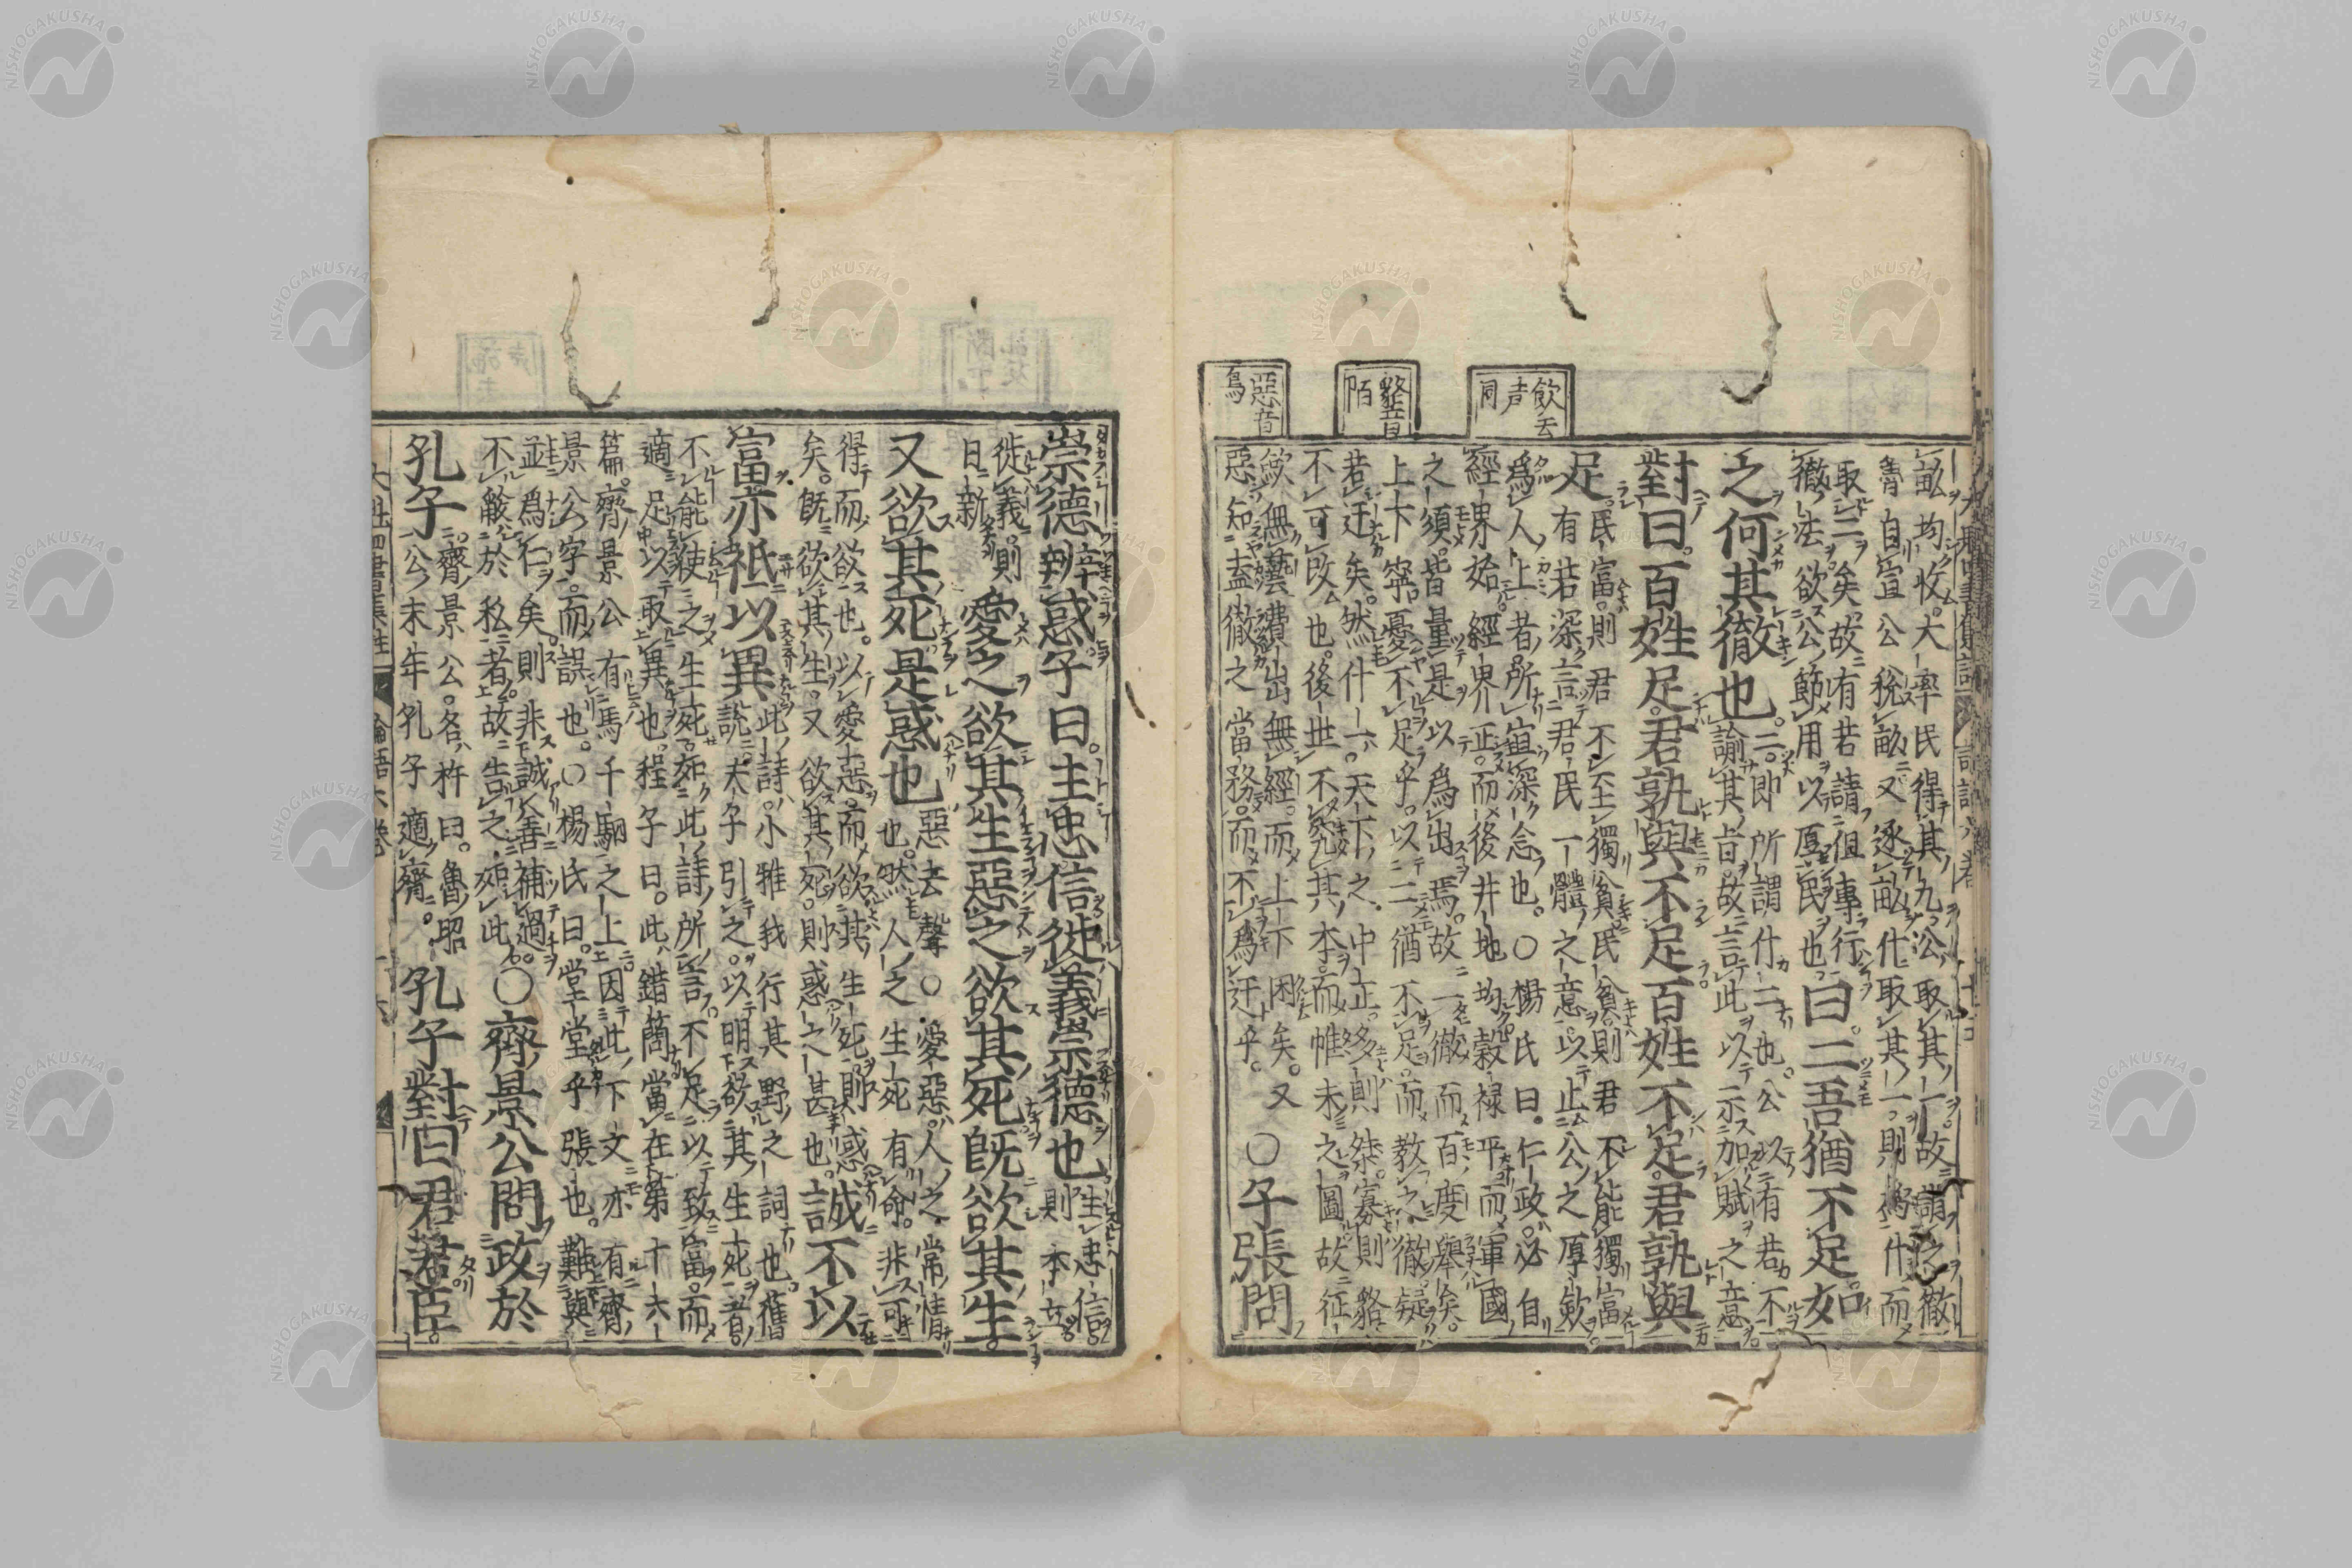 飲去声同
貉音陌
惡音烏
畝均收。大率民得其九。公取其一。故謂之徹
魯自宣公稅畝又逐畝什取其一。則為什而
取二矣。故有若請但專行
徹法欲公節用以厚民也。
曰。二吾猶不足。如
之何其徹也。
二。即所謂什二也。公以有若不
諭其旨。故言此以示加賦之意。
對曰。百姓足。君孰與不足。百姓不足。君孰與
足。
民富。則君不至獨貧民貧。則君不能獨富
有若深言君民一體之意。以止公之厚斂
為人上者。所宜深念也。○楊氏曰。仁政。必自
經界始經界正。而後井地均穀祿平而軍國
之須。皆量是以為出焉。故一徹而百度舉矣。
上下寧憂不足乎。以二猶不足。而教之徹疑
若迂矣。然什一。天下之中正。多則桀。寡則貉
不可改也。後世不究其本。而惟末之圖故征
斂無藝費出無經。而上下困矣。又
惡知盍徹之當務。而不為迂乎。
○子張問
崇德辨惑子曰。主忠信徙義崇德也
主忠信。則本立。
徙義。則日新
愛之欲其生惡之欲其死既欲其生。
又欲其死是惑也
惡去聲○愛惡。人之常情
也。然人之生死有命。非可
得而欲也。以愛惡。而欲其生死則惑
矣。既欲其生。又欲其死。則惑之甚也。
誠不以
富亦祗以異
此詩。小雅我行其野之詞也。舊
說。夫子引之。以明欲其生死者。
不能使之生死。如此詩所言不足以致富。而
適足以取異也。程子曰。此錯簡當在第十六
篇。齊景公有馬千駟之上因此下文亦有齊
景公字。而誤也。○楊氏曰。堂堂乎張也。難與
並為仁矣。則非誠善補過。
不蔽於私者。故告之如此。
○齊景公問政於
孔子
齊景公。名杵臼。魯昭
公末年孔子適齊。
孔子對曰君君臣臣。